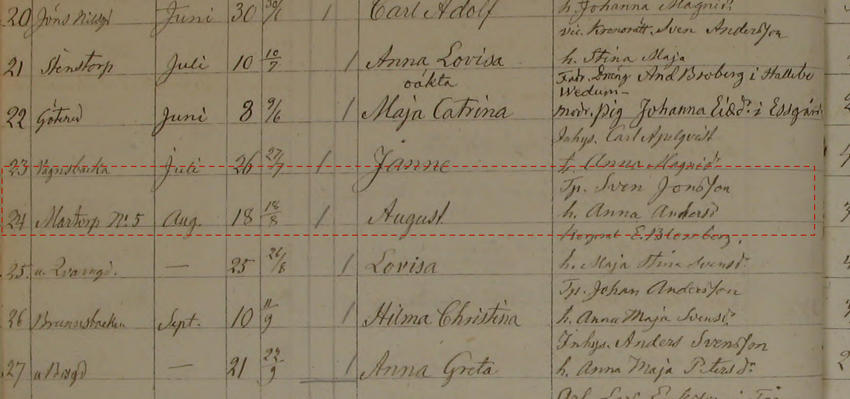 20 Juni 30 30/6 1 Carl Adolf h. Johanna Magnid:
vic. Kronorätt. Sven Andersson
21 Stenstorp Juli 10 10/7 1 Anna Lovisa h. Stina Maja
oäkta Fadr. Dräng And Broberg i Hallebo
Wedum
22 Götened Juni 8 9/6 1 Maja Catrina modr. pig Johanna i
Inhys. Carl
23 Juli 26 27/7 1 Janne h. Anna Magnid:
Tp. Sven Jonsson
24 Martorp No. 5 Aug. 18 18/8 1 August h. Anna Andersd
E. Blomberg.
25 — 25 26/8 1 Lovisa h. Maja Stina Svensd:
Tp. Johan Andersson
26 Brunnsbacken Sept. 10 11/9 1 Hilma Christina h. Anna Maja Svensd:
Inhys. Anders Svensson
27 — 21 22/9 1 Anna Greta h. Anna Maja Petersd: